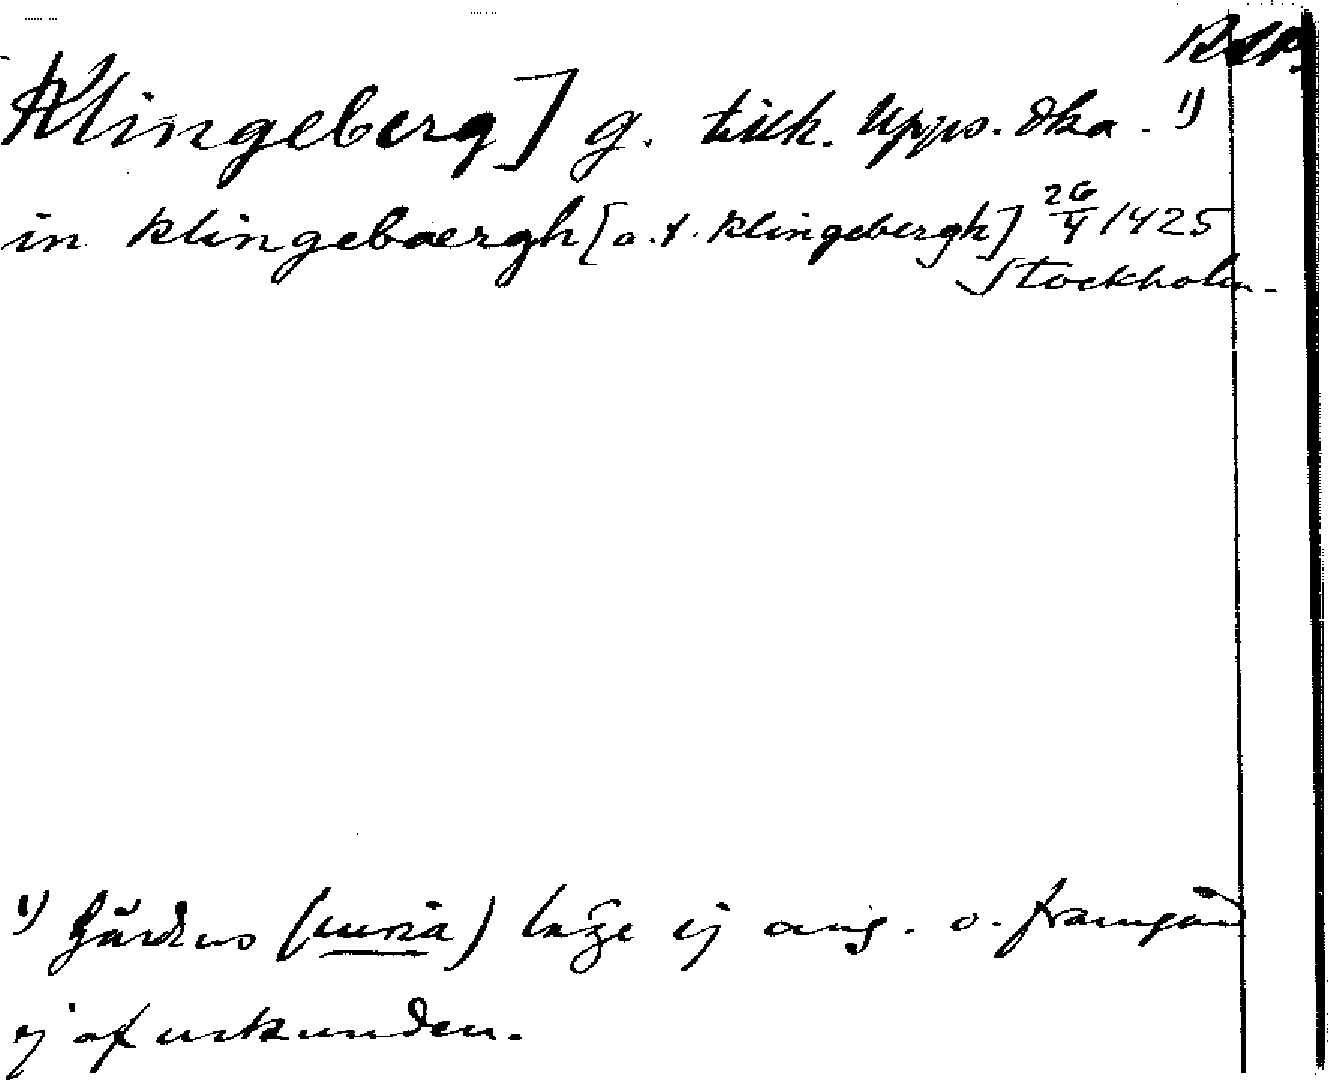 Klingeberg] g. tidh. Upps. dka. 1)
in klingebaergh [o.t. klingebergh] 26/4 1425
Stockholm.
1) Gårdens (curia) läge ej ang. o. framgår
ej af urkunden.